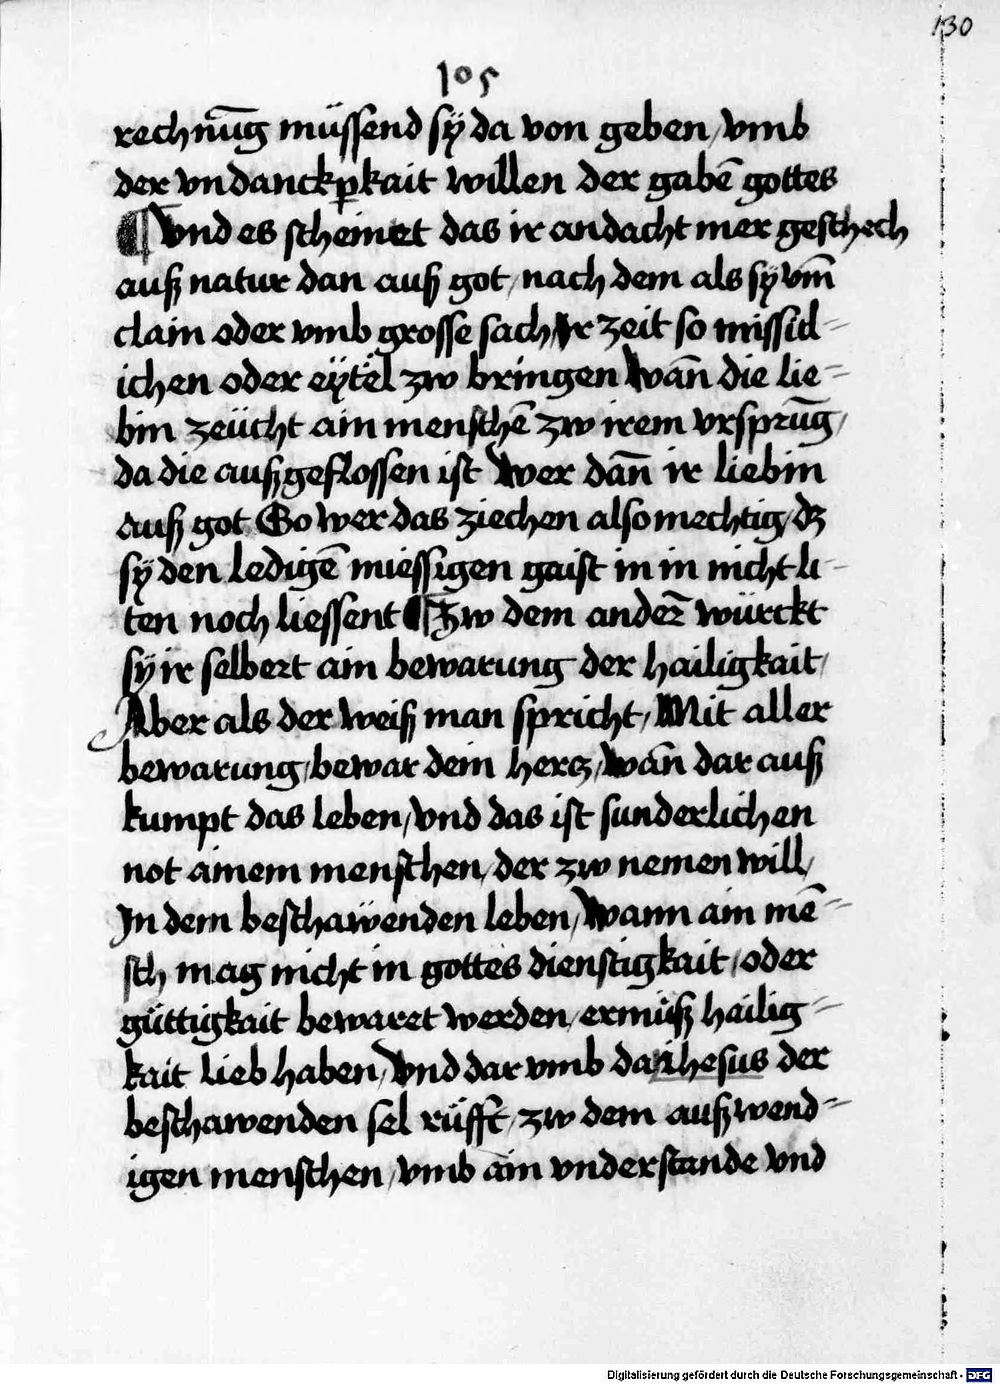 130
105
rechnūg müssend sÿ da von geben / vmb
der vndanckꝑkait willen der gabē gottes
¶ Vnd es scheinet das ir andacht mer geschech
auß natur dan auß got / nach dem als sÿ vm̄
clain oder vmb grosse sach ir zeit so missid-
ichen oder eÿtel zw bringen Wān die lie-
bin zeücht ain menschē zw irem vrsprūg /
da die außgeflossen ist Wer dan̄ ir liebin
auß got So wer das ziechen also mechtig / dz
sÿ den ledigē miessigen gaist in in nicht li-
ten noch liessent ¶ Zw dem anderꝛ̄ würckt
sÿ ir selbert ain bewarung der hailigkait /
Aber als der weiß man spricht / Mit aller
bewarung / bewar dein hercz / wān dar auß
kumpt das leben / vnd das ist sunderlichen
not ainem menschen / der zw nemen will /
In dem beschawenden leben / Wann ain mē-
sch mag nicht in gottes dienstigkait / oder
güttigkait bewaret werden / er muß heilig-
kait lieb haben / Vnd dar vmb da ihesus der
beschawenden sel rüfft / zw dem außwend-
igen menschen / vmb ain vnderstande vnd
Digitalisierung gefördert durch die Deutsche Forschungsgemeinschaft - DFG